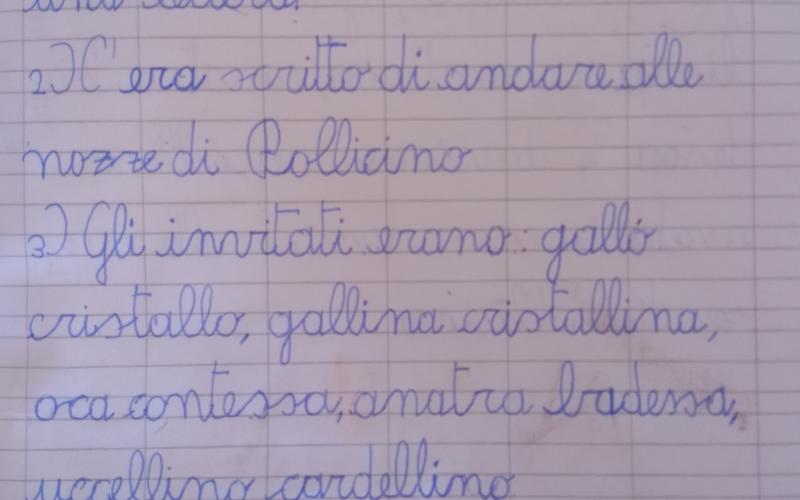 2) C'era scritto di andare alle
nozze di Pollicino
3) Gli invitati erano: gallo
cristallo, gallina cristallina,
oca contessa, anatra badessa,
uccellino cardellino